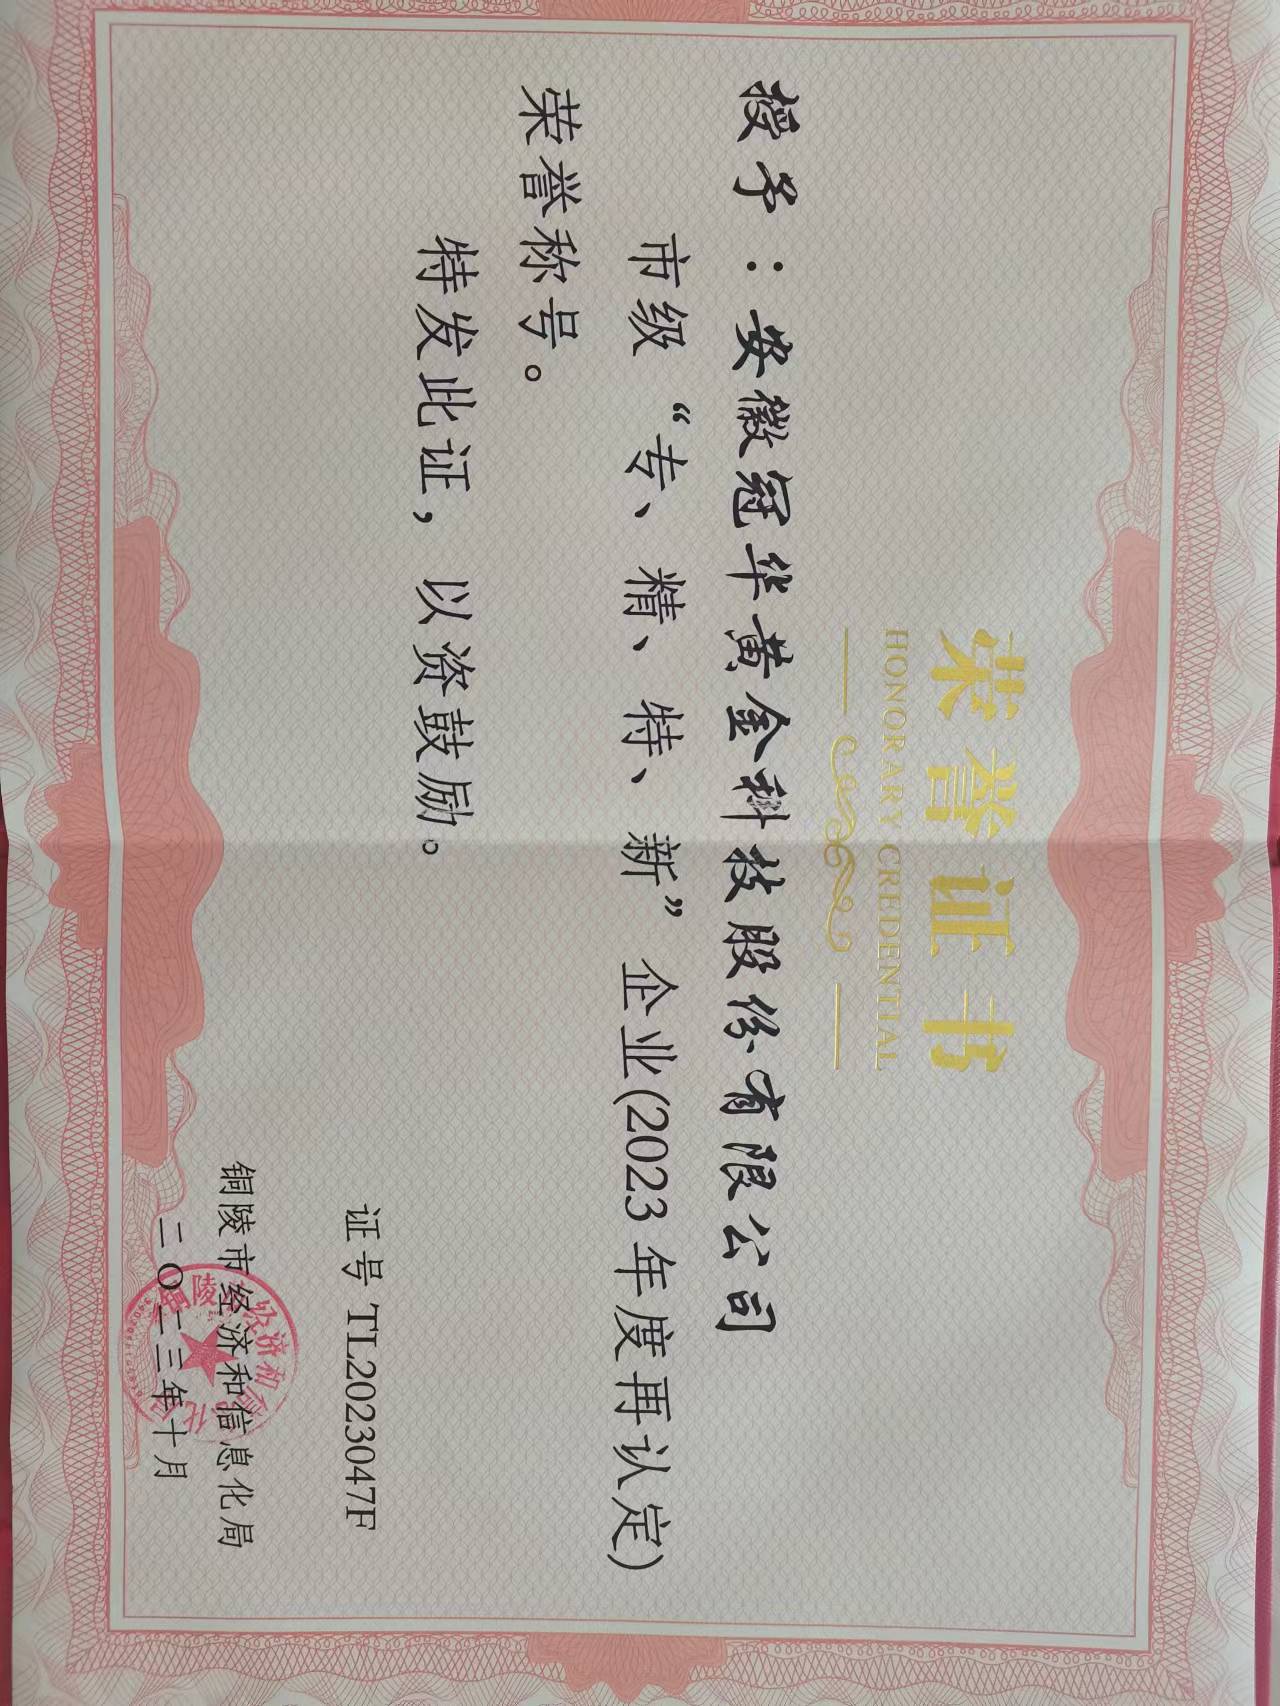 荣誉证书
HONORARY CREDENTIAL
授予：安徽冠华黄金科技股份有限公司
市级“专、精、特、新”企业(2023年度再认定)
荣誉称号。
特发此证，以资鼓励。
证号 TL2023047F
铜陵市经济和信息化局
二〇二三年十月
铜陵市经济和信息化